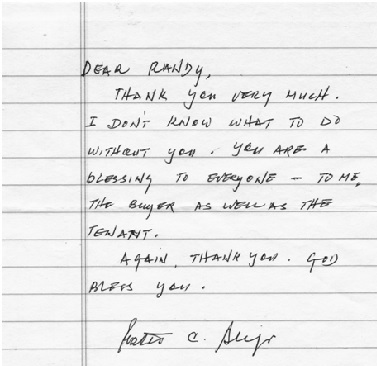 DEAR RANDY,
THANK YOU VERY MUCH.
I DON'T KNOW WHAT TO DO
WITHOUT YOU. YOU ARE A
BLESSING TO EVERYONE – TO ME,
THE BUYER AS WELL AS THE
TENANT.
AGAIN, THANK YOU. GOD
BLESS YOU.
C.